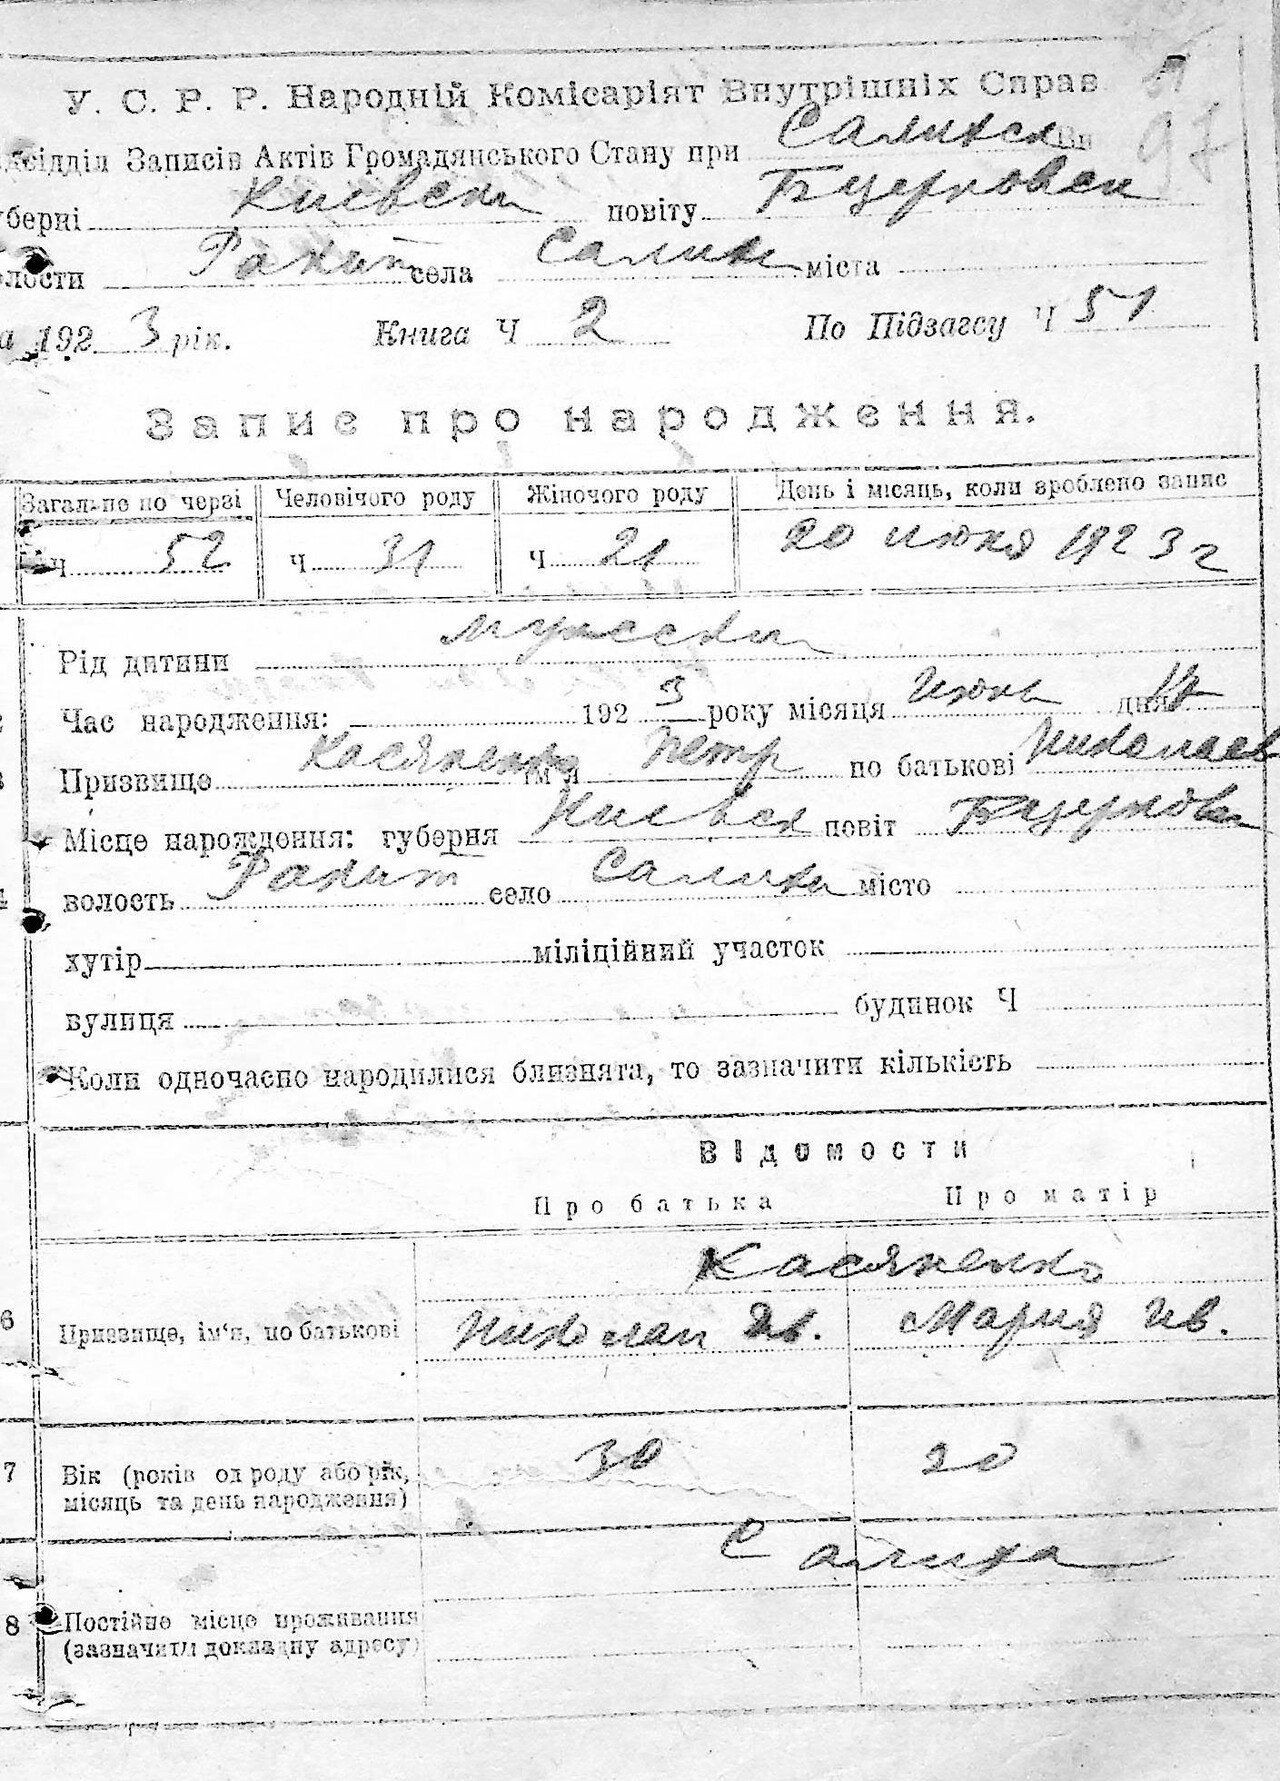 У. С. Р. Р. Народній Комісаріят Внутрішніх Справ
Записів Актів Громадянського Стану при Салихск
Киевск повіту Бцерковск
Ракит села Салиха міста
192 3 рік. Книга Ч 2 По Підзагсу Ч 51
Запис про народження.
Загальне по черзі Человічого роду Жіночого роду День і місяць, коли зроблено запис
Ч 52 Ч 31 Ч 21 20 июня 1923 г
Рід дитини мужески
Час народження: 192 3 року місяця Июнь дня
Призвище Касяненко ім'я Петр по батькові Николаев
Місце нарождення: губерня Киевск повіт Бцерковск
волость Ракит село Салиха місто
хутір міліційний участок
вулиця будинок Ч
Коли одночасно народилися близнята, то зазначити кількість
Відомости
Про батька Про матір
Касяненко
6 Призвище, ім'я, по батькові Николай Ив. Мария Ив.
7 Вік (років од роду або рік, місяць та день народження) 30 20
Салиха
8 Постійне місце проживання
(зазначити докладну адресу)